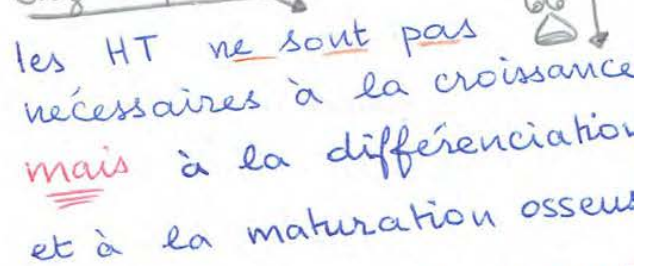 les HT ne sont pas
nécessaires à la croissance
mais à la différenciation
et à la maturation osseus